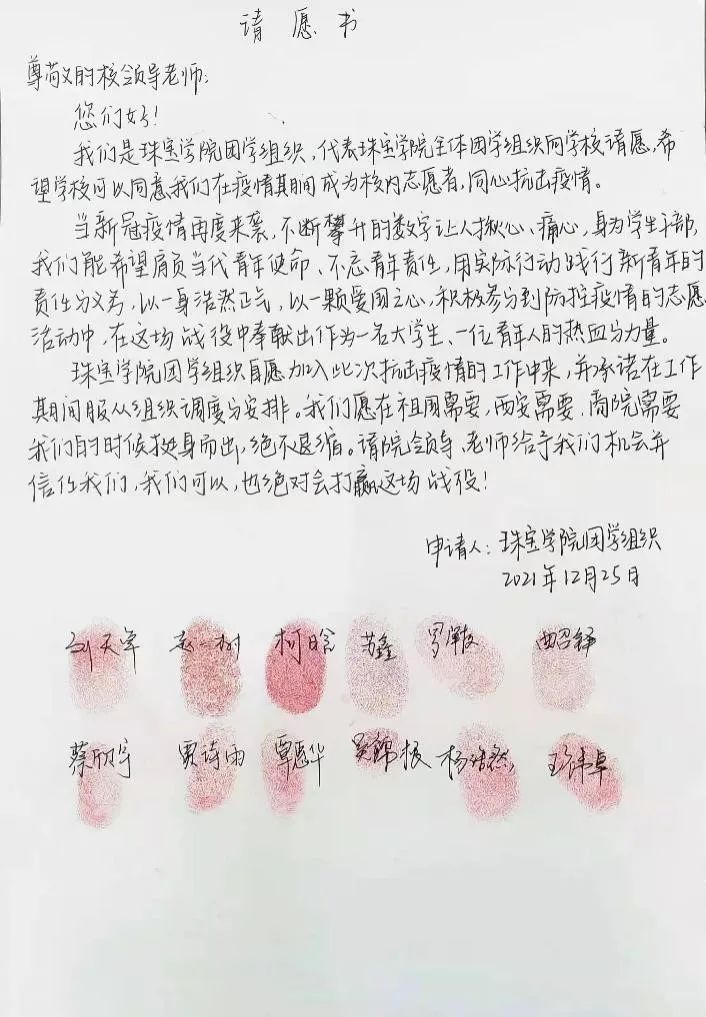 请愿书
尊敬的校领导老师:
您们好!
我们是珠宝学院团学组织,代表珠宝学院全体团学组织向学校请愿,希
望学校可以同意我们在疫情期间成为校内志愿者,同心抗击疫情。
当新冠疫情再度来袭,不断攀升的数字让人揪心、痛心,身为学生干部,
我们能希望肩负当代青年使命、不忘青年责任,用实际行动践行新青年的
责任与义务,以一身浩然正气,以一颗爱国之心,积极参与到防控疫情的志愿
活动中,在这场战役中奉献出作为一名大学生、一位青年人的热血与力量。
珠宝学院团学组织自愿加入此次抗击疫情的工作中来,并承诺在工作
期间服从组织调度与安排。我们愿在祖国需要,西安需要,商院需要
我们的时候挺身而出,绝不退缩。请院领导、老师给予我们机会并
信任我们,我们可以,也绝对会打赢这场战役!
申请人:珠宝学院团学组织
2021年12月25日
柯晗 苏鑫
蔡欣宇 贾诗雨 覃思华 吴锦根 杨浩然 王伟卓